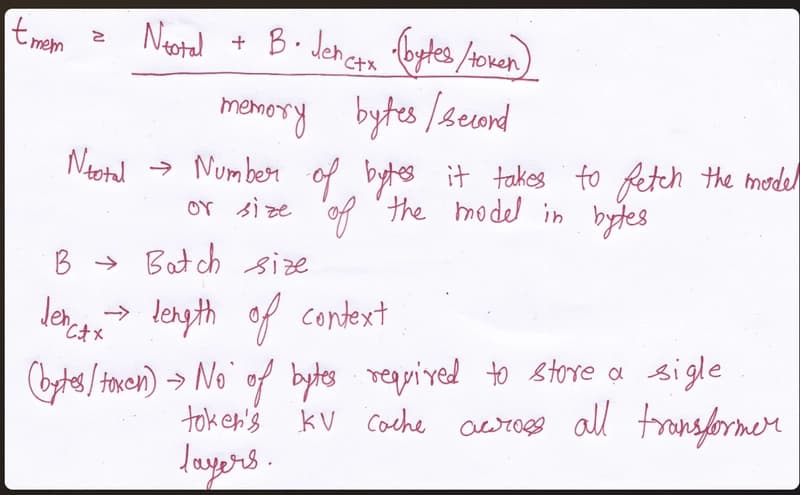 t_mem = N_total + B · len_ctx · (bytes/token)
memory bytes/second
N_total → Number of bytes it takes to fetch the model
or size of the model in bytes
B → Batch size
len_ctx → length of context
(bytes/token) → No of bytes required to store a sigle
token's KV cache across all transformer
layers.